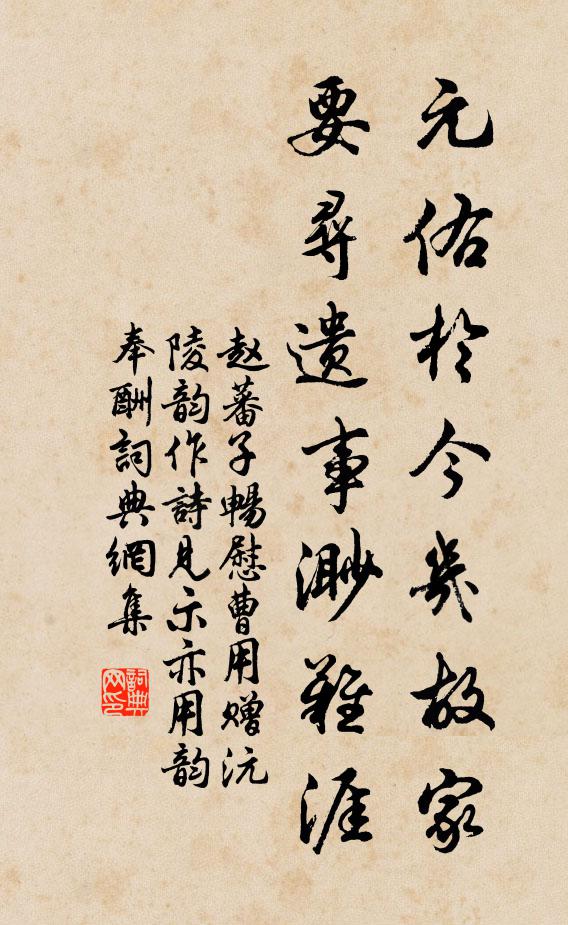 元佑於今幾故家
要尋遺事渺難涯
赵蕃子暢慰曹用赠沅
陵韵作詩見示亦用韵
奉酬詞典網集
詞典网印